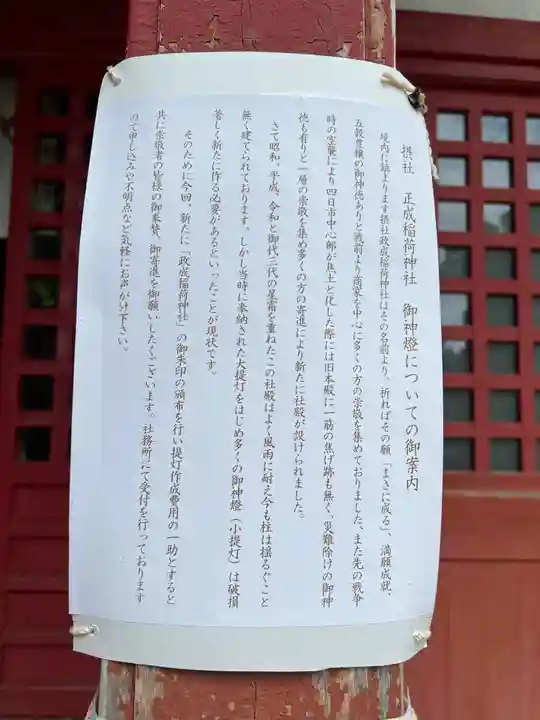 摂社　正成稲荷神社　御神燈についての御案内
境内に鎮まります摂社政成稲荷神社はその名前より、祈ればその願「まさに成る」、満願成就、
五穀豊穣の御神徳ありと戦前より商家を中心に多くの方の崇敬を集めておりました。また先の戦争
時の空襲により四日市中心部が焦土と化した際には旧本殿に一筋の焦げ跡も無く、災難除けの御神
徳も有りと一層の崇敬を集め多くの方の寄進により新たに社殿が設けられました。
さて昭和、平成、令和と御代三代の星霜を重ねたこの社殿はよく風雨に耐え今も柱は揺るぐこと
無く建てられております。しかし当時に奉納された大提灯をはじめ多くの御神燈（小提灯）は破損
著しく新たに作る必要があるといったことが現状です。
そのために今回、新たに「政成稲荷神社」の御朱印の頒布を行い提灯作成費用の一助とすると
共に崇敬者の皆様の御奉賛、御寄進を御願いしたくございます。社務所にて受付を行っております
ので申し込みや不明点など気軽にお声がけ下さい。